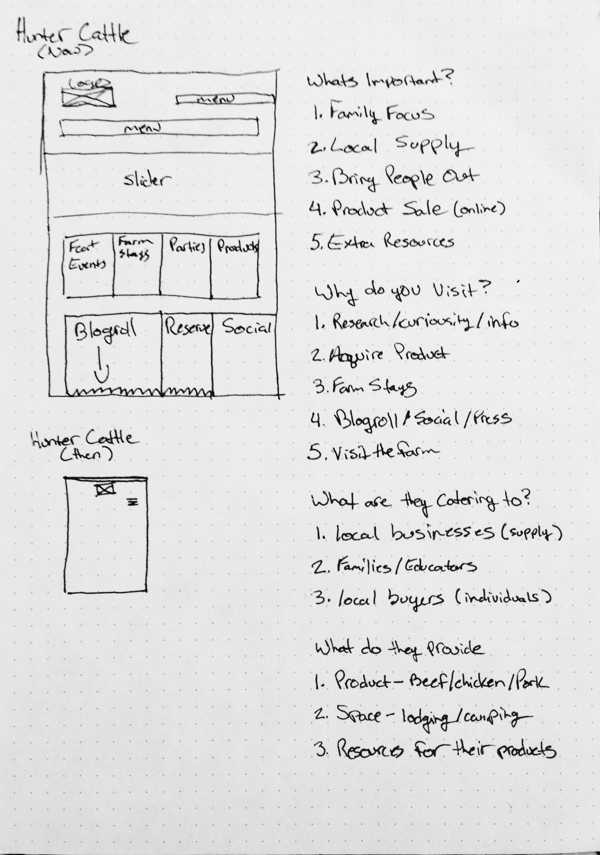 Hunter Cattle
(Now)
Logo
menu
menu
Slider
Feat
Events
Farm
Stays
Parties
Products
Blogroll
Reserve
Social
Hunter Cattle
(then)
Whats Important?
1. Family Focus
2. Local Supply
3. Bring People Out
4. Product Sale (online)
5. Extra Resources
Why do you Visit?
1. Research/curiousity/info
2. Aquire Product
3. Farm Stays
4. Blogroll/Social/Press
5. Visit the farm
What are they Catering to?
1. Local businesses (supply)
2. Families/Educators
3. local buyers (individuals)
What do they Provide
1. Product - Beef/chicken/Pork
2. Space - lodging/camping
3. Resources for their products